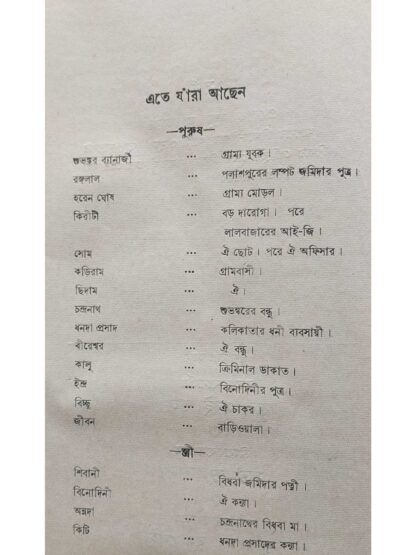 এতে যাঁরা আছেন
—পুরুষ—
শুভঙ্কর ব্যানার্জী ... গ্রাম্য যুবক।
রঙ্গলাল ... পলাশপুরের লম্পট জমিদার পুত্র।
হরেন ঘোষ ... গ্রাম্য মোড়ল।
কিরীটী ... বড় দারোগা। পরে
লালবাজারের আই-জি।
সোম ... ঐ ছোট। পরে ঐ অফিসার।
কড়িরাম ... গ্রামবাসী।
ছিদাম ... ঐ।
চন্দ্রনাথ ... শুভঙ্করের বন্ধু।
ধনদা প্রসাদ ... কলিকাতার ধনী ব্যবসায়ী।
বীরেশ্বর ... ঐ বন্ধু।
কালু ... ক্রিমিনাল ডাকাত।
ইন্দ্র ... বিনোদিনীর পুত্র।
বিচ্ছু ... ঐ চাকর।
জীবন ... বাড়িওয়ালা।
—স্ত্রী—
শিবানী ... বিধবা জমিদার পত্নী।
বিনোদিনী ... ঐ কন্যা।
অন্নদা ... চন্দ্রনাথের বিধবা মা।
কিটি ... ধনদা প্রসাদের কন্যা।